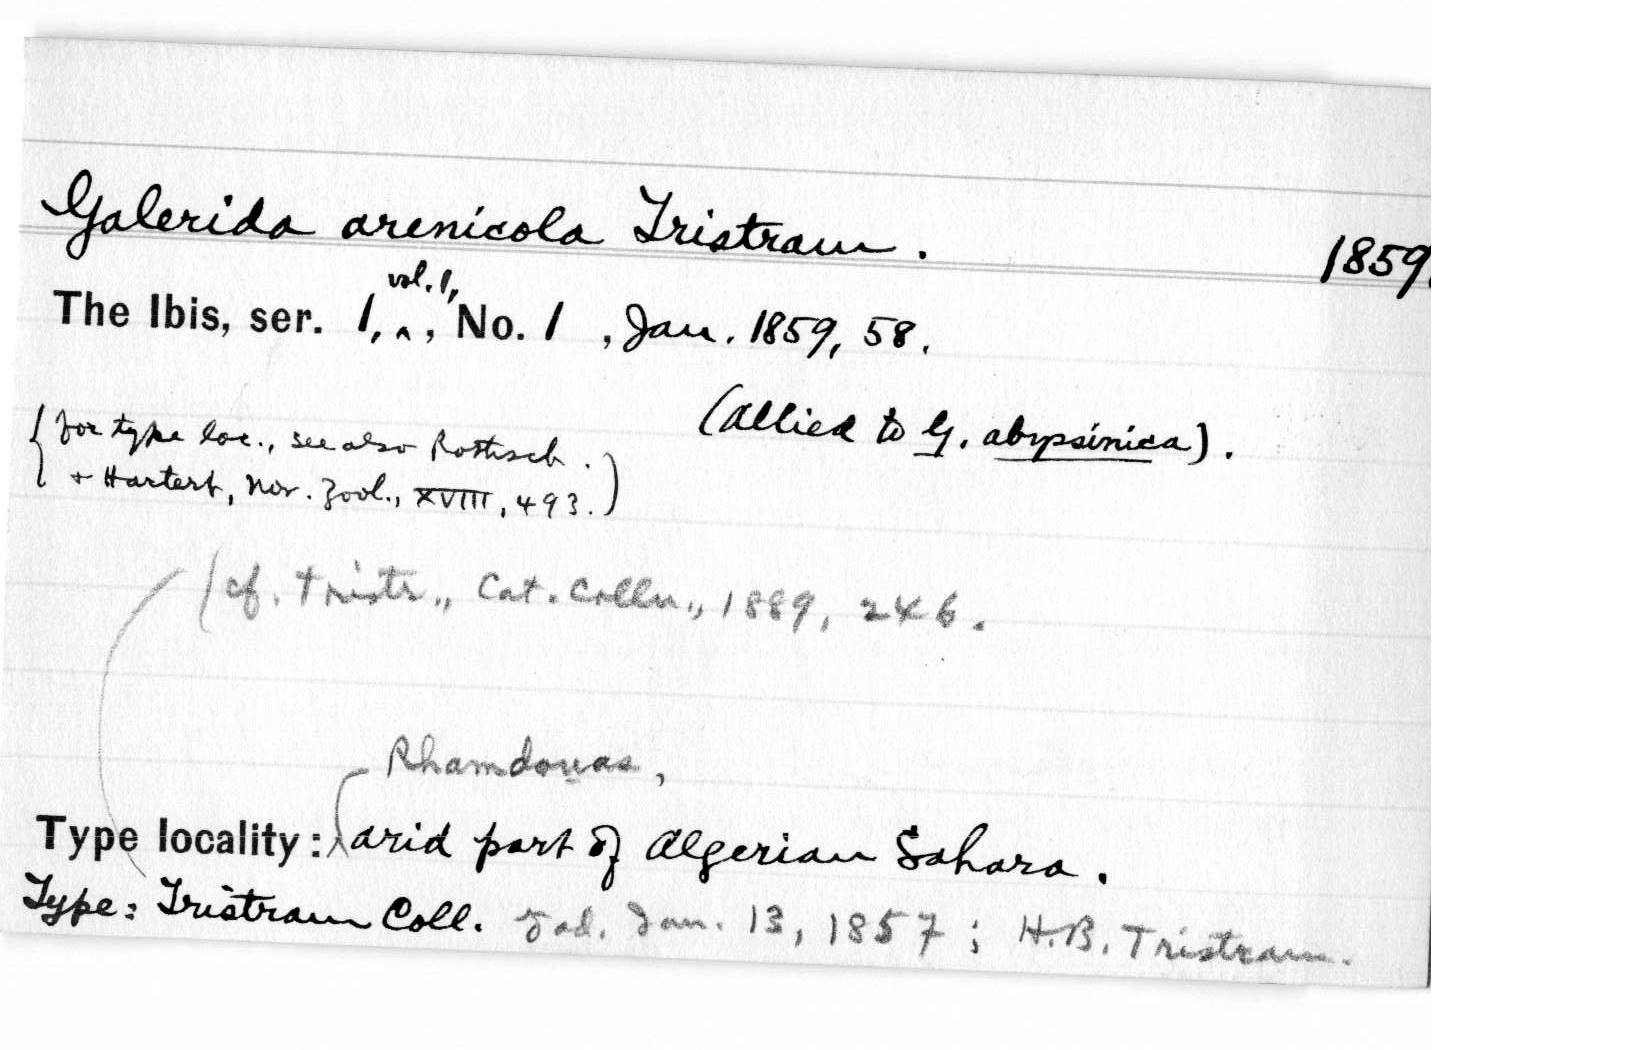 Galerida arenicola Tristram. 1859.
The Ibis, ser. 1, vol. 1, , No. 1 , Jan. 1859, 58.
(Allied to G. abyssinica).
{for type loc., see also Rothsch.
+ Hartert, Nov. Zool., XVIII, 493.)
(cf. Tristr., Cat. Colln., 1889, 246.
Rhamdouas,
Type locality: arid part of Algerian Sahara.
Type: Tristram Coll. ad. Jan. 13, 1857; H.B. Tristram.